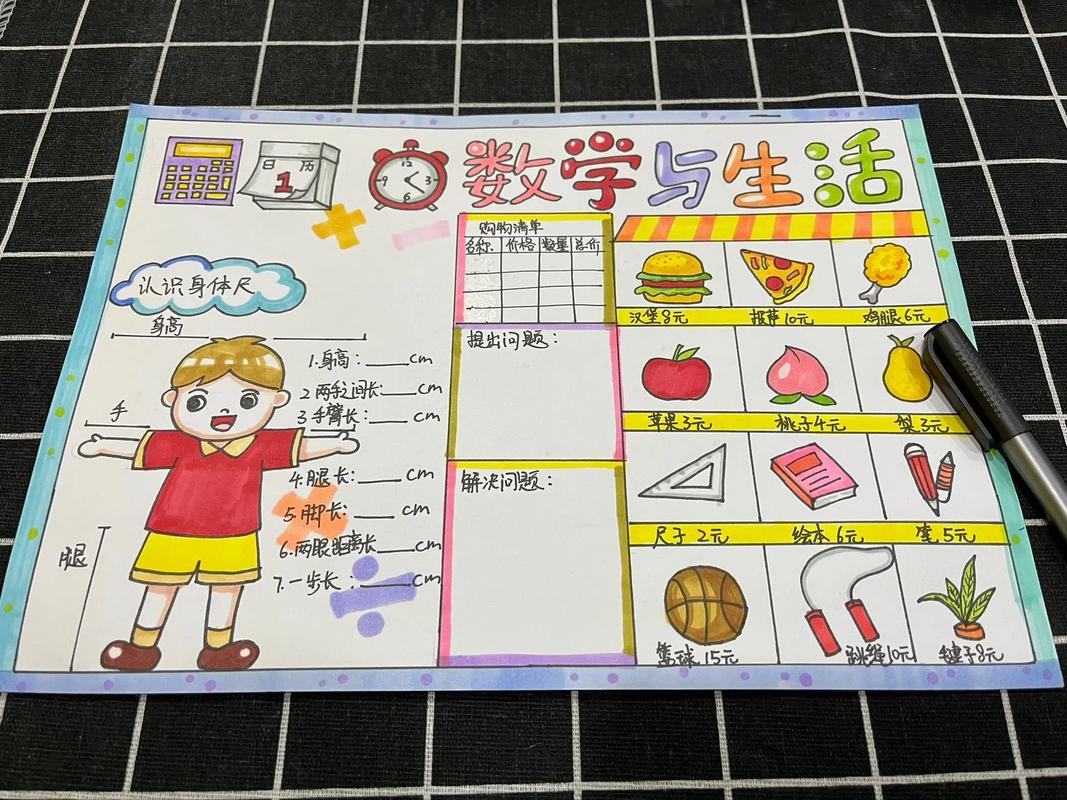 日历
1
12
3
6
9
数学与生活
认识身体尺
身高
手
腿
1.身高：____cm
2 两手之间长：____cm
3 手臂长：____cm
4.腿长：____cm
5.脚长：____cm
6.两眼距离长____cm
7.一步长：____cm
购物清单
名称 价格 数量 总价
提出问题：
解决问题：
汉堡8元 披萨10元 鸡腿6元
苹果3元 桃子4元 梨3元
尺子 2元 绘本6元 笔5元
篮球 15元 跳绳10元 毽子8元